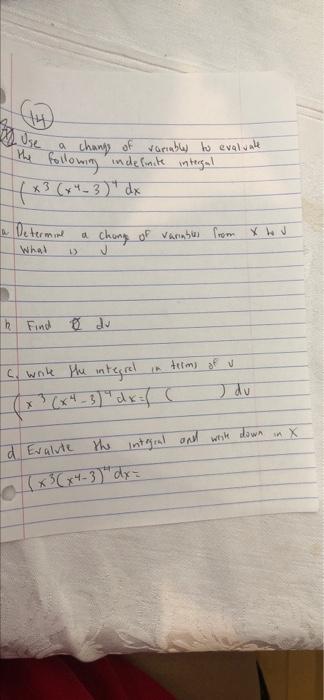 14
Use a change of variables to evaluate
the following indefinite integral
∫ x³ (x⁴ - 3)⁴ dx
a Determine a change of variables from x to u
What is u
b Find du
c. write the integral in terms of u
∫ x³ (x⁴ - 3)⁴ dx = ∫ ( ) du
d Evalute the integral and write down in X
∫ x³ (x⁴ - 3)⁴ dx =